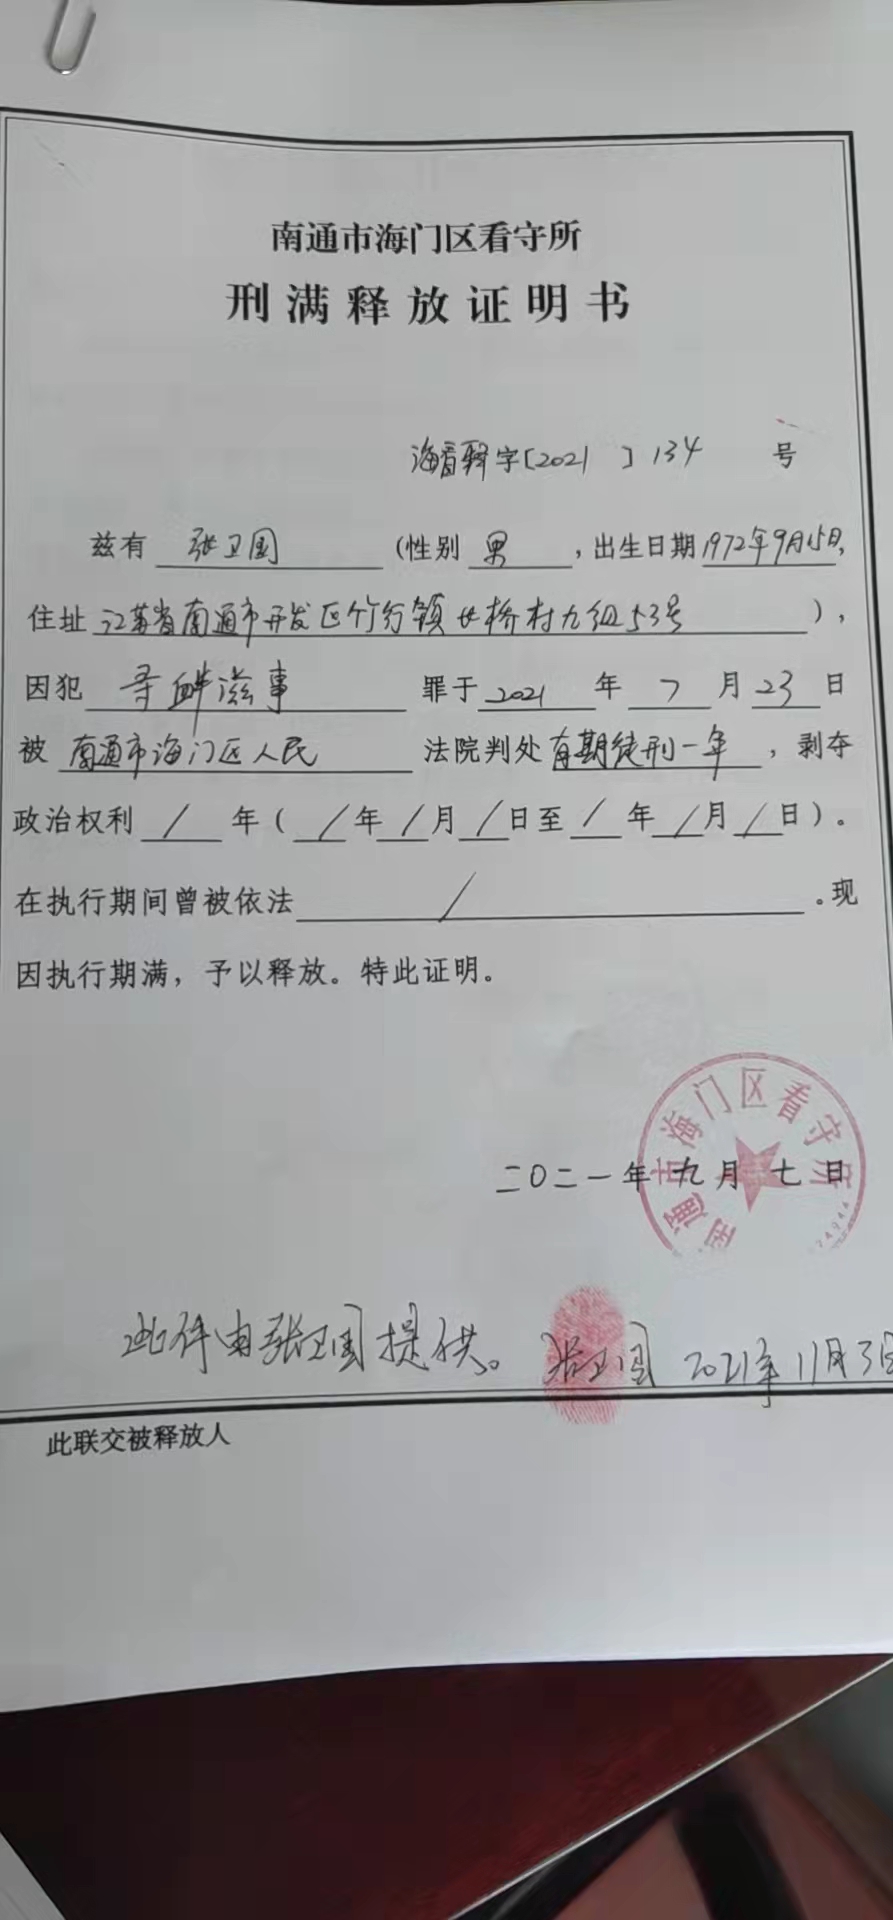 南通市海门区看守所
刑满释放证明书
海看释字[2021]134号
兹有 张卫国 (性别 男 ,出生日期1972年9月15日,
住址 江苏省南通市开发区竹行镇 桥村九组53号 ),
因犯 寻衅滋事 罪于 2021 年 7 月 23 日
被 南通市海门区人民 法院判处有期徒刑一年 ,剥夺
政治权利 / 年( / 年 / 月 / 日至 / 年 / 月 / 日)。
在执行期间曾被依法 / 。现
因执行期满,予以释放。特此证明。
南通市海门区看守所
二〇二一年九月七日
此件由张卫国提供。 张卫国 2021年11月3日
此联交被释放人